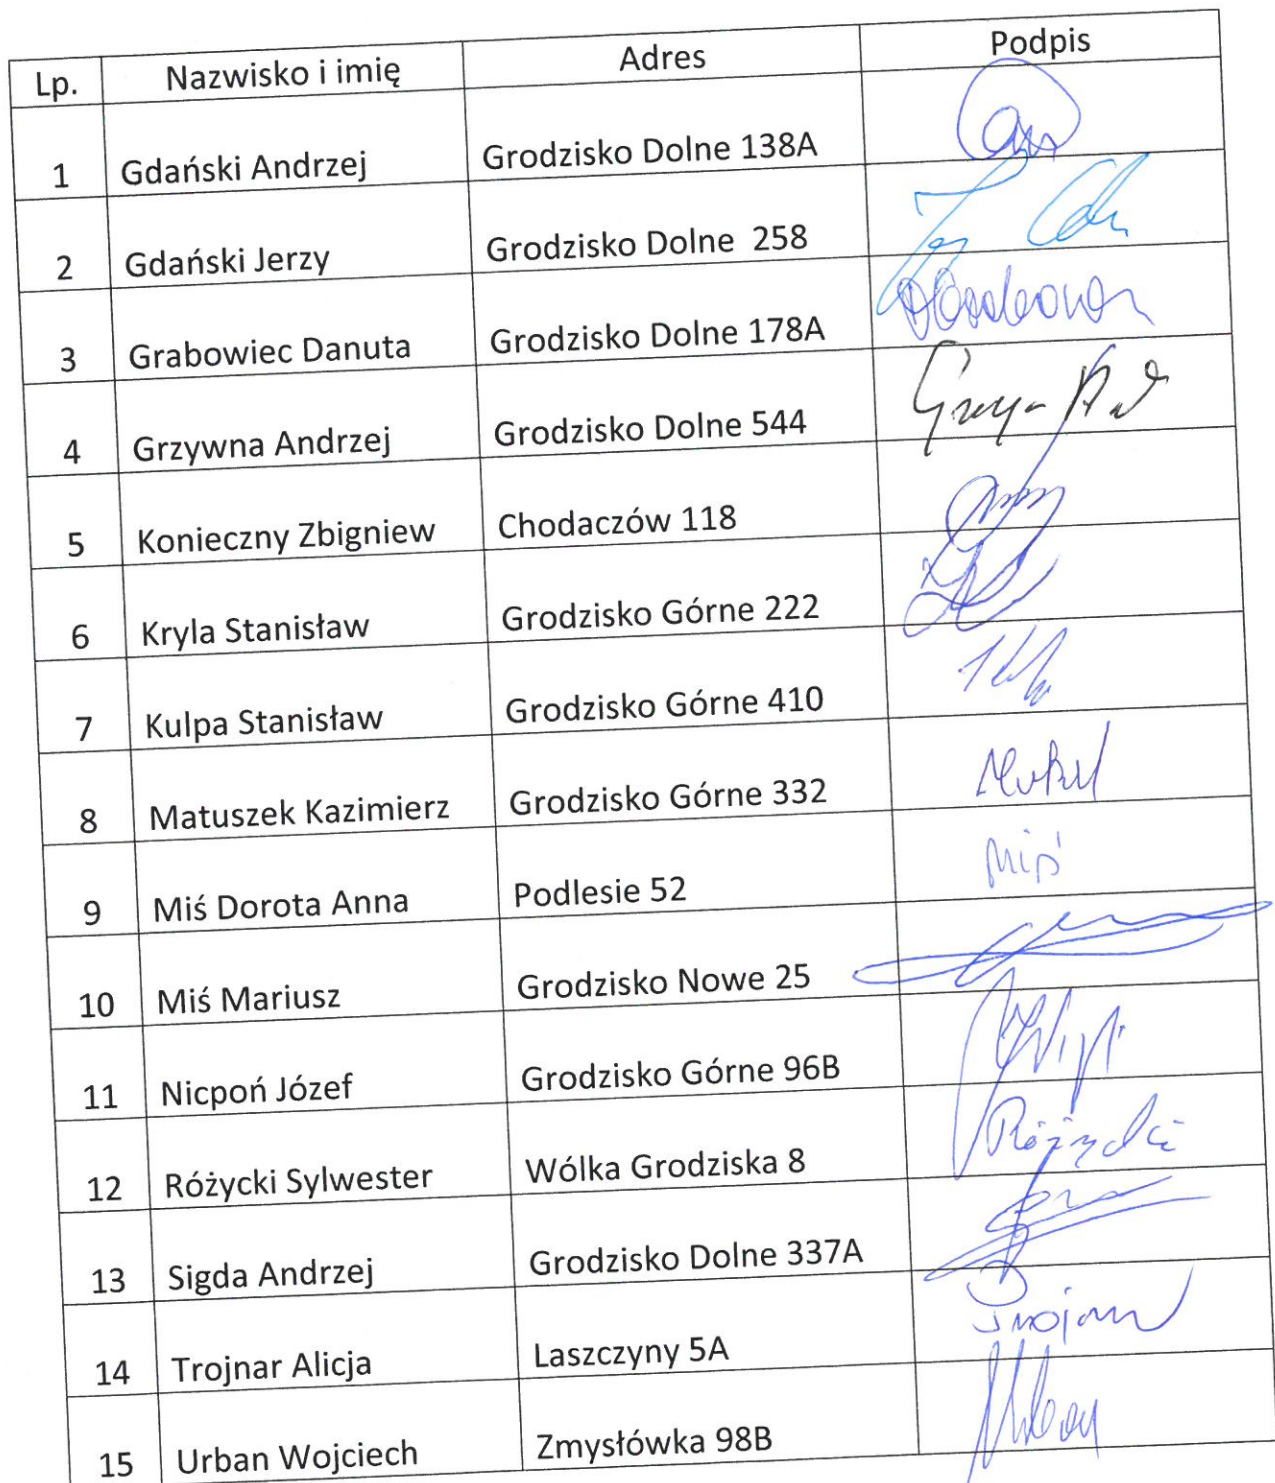 Lp. Nazwisko i imię Adres Podpis
1 Gdański Andrzej Grodzisko Dolne 138A
2 Gdański Jerzy Grodzisko Dolne 258
3 Grabowiec Danuta Grodzisko Dolne 178A
4 Grzywna Andrzej Grodzisko Dolne 544
5 Konieczny Zbigniew Chodaczów 118
6 Kryla Stanisław Grodzisko Górne 222
7 Kulpa Stanisław Grodzisko Górne 410
8 Matuszek Kazimierz Grodzisko Górne 332
9 Miś Dorota Anna Podlesie 52 Miś
10 Miś Mariusz Grodzisko Nowe 25
11 Nicpoń Józef Grodzisko Górne 96B
12 Różycki Sylwester Wólka Grodziska 8 Różycki
13 Sigda Andrzej Grodzisko Dolne 337A
14 Trojnar Alicja Laszczyny 5A
15 Urban Wojciech Zmysłówka 98B